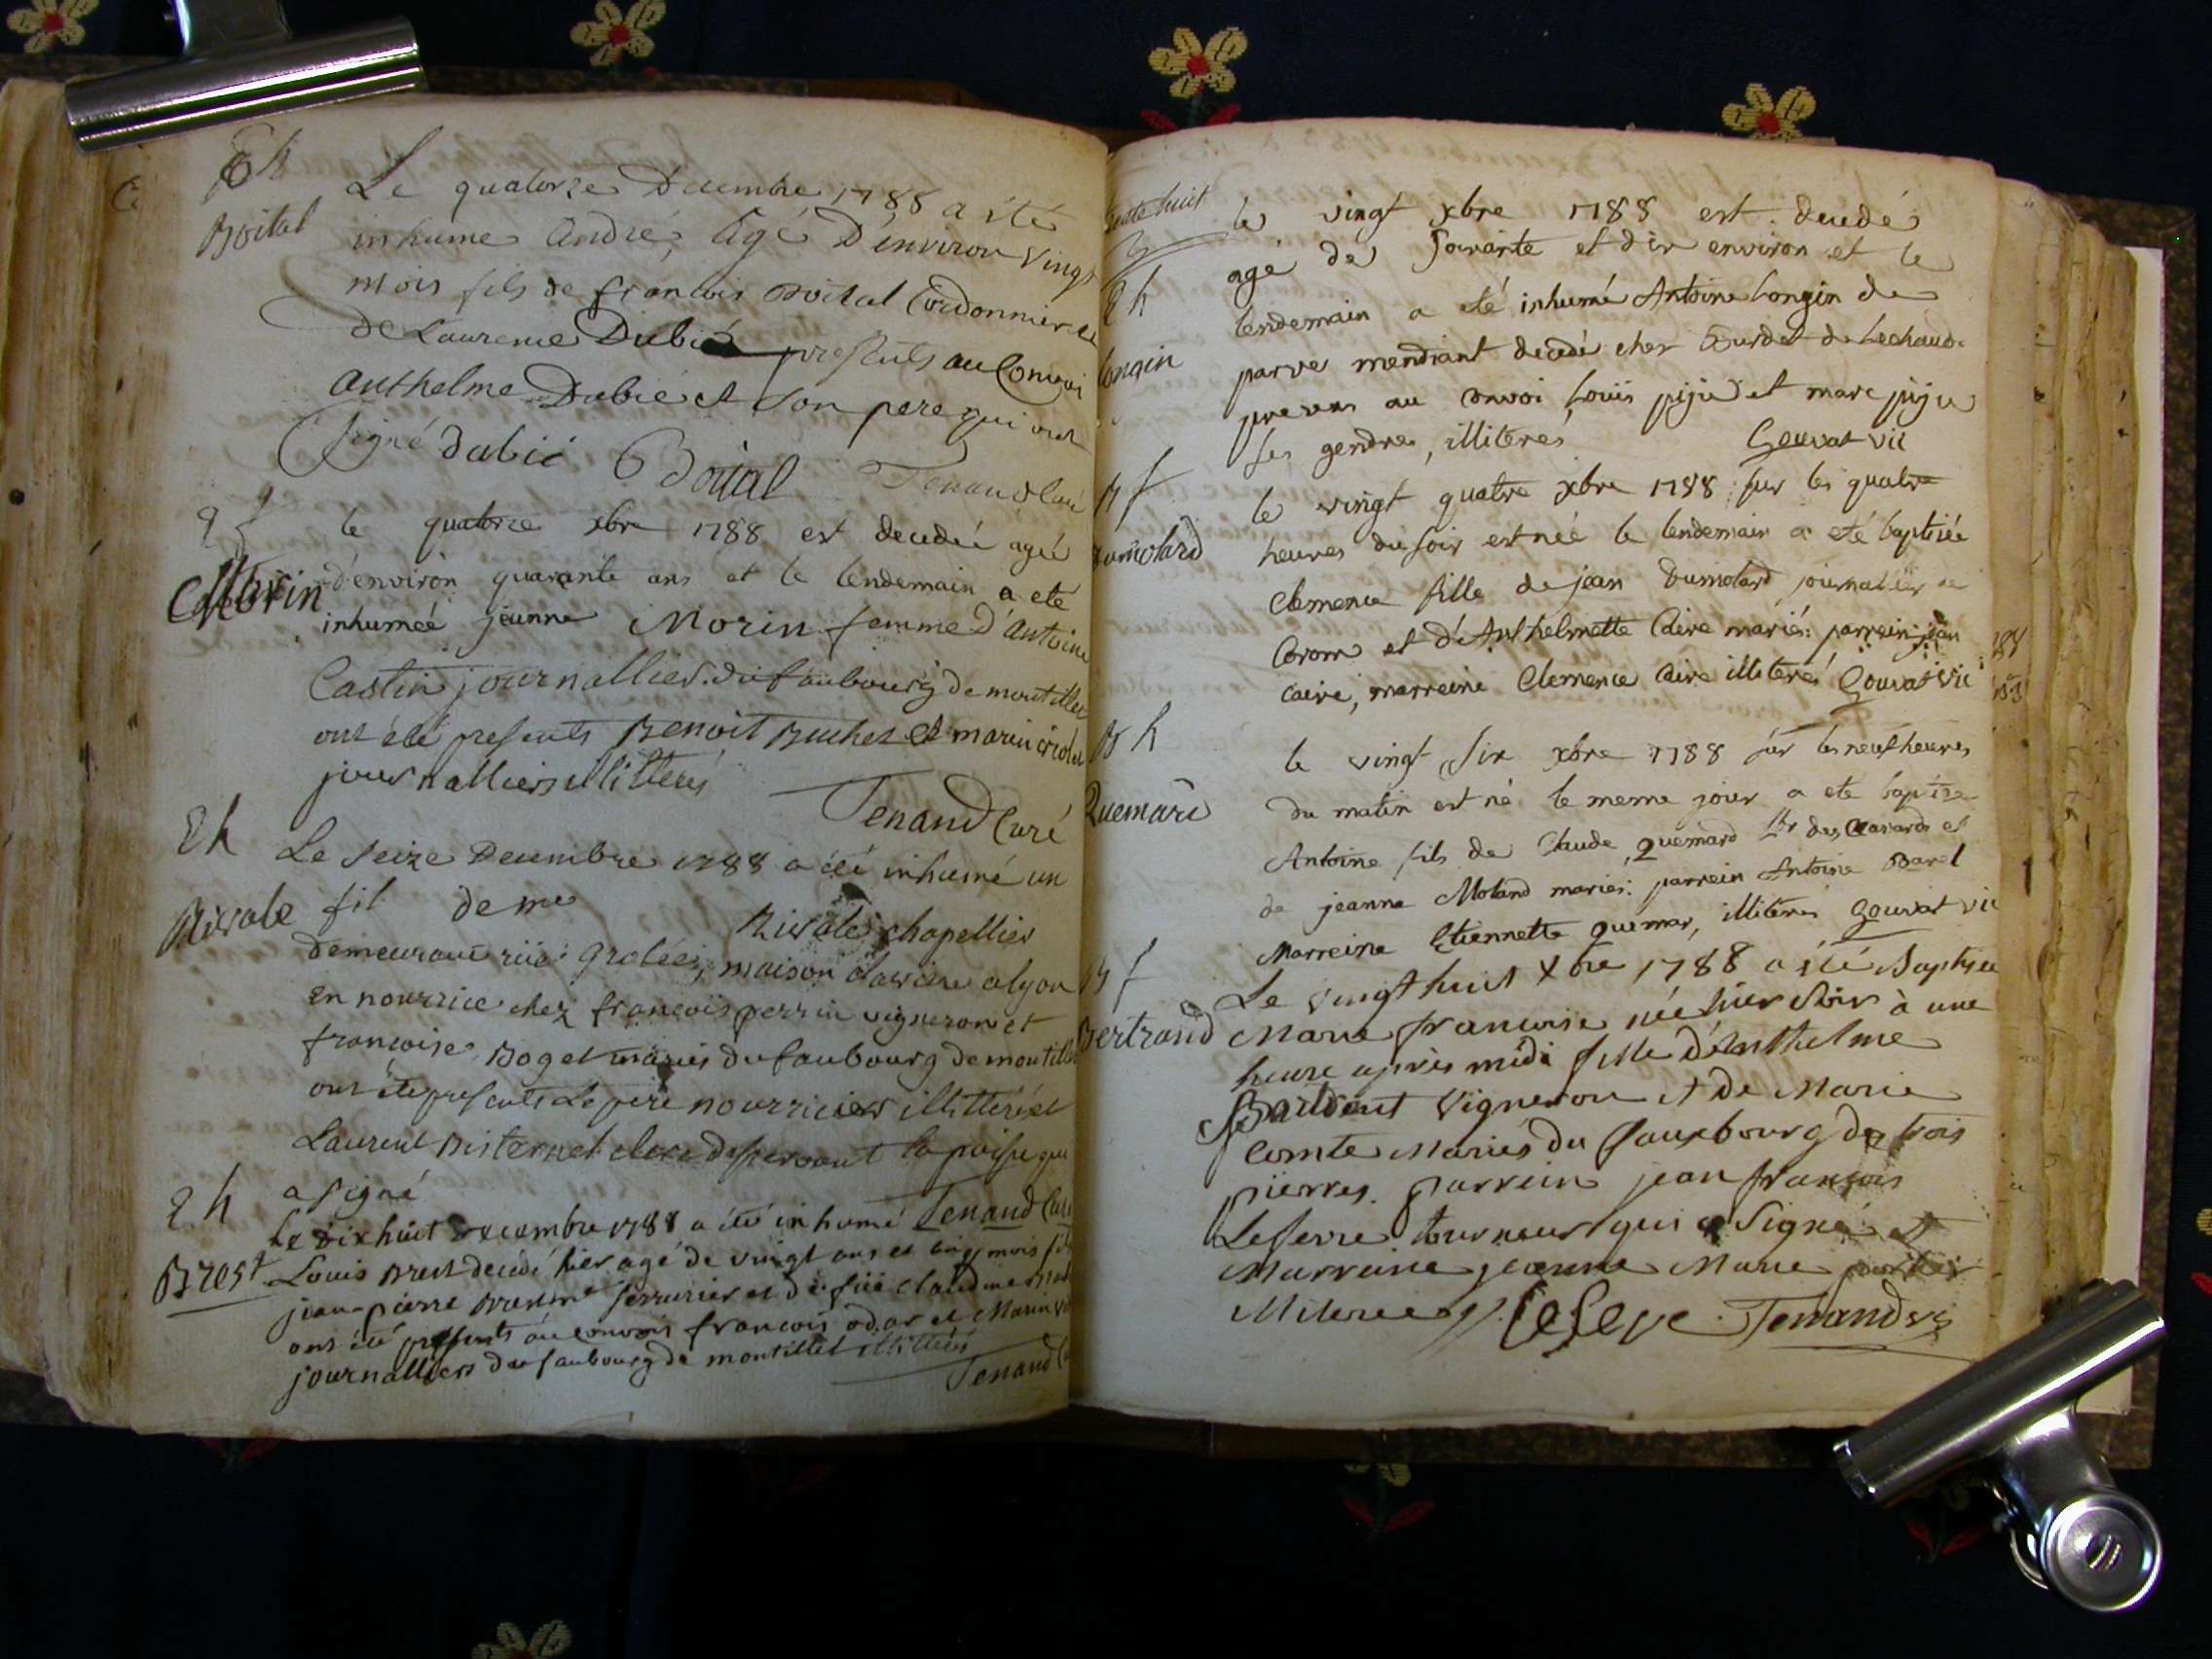 Eh
Boital
Le quatorze Decembre 1788 a été
inhume André, Agé D'environ vingt
mois fils de francois Boital Cordonnier et
De Laurence Dubié presents au Convoi
Anthelme Dubié et Son pere qui ont
Signé Dubié Boital Tenand Curé
Ef
Morin
le quatorze xbre 1788 est decedée agée
d'environ quarante ans et le lendemain a eté
inhumée jeanne Morin femme d'Antoine
Castin journallier du faubourg de montillet
ont été presents Benoit Buchet et marin
journalliers illitterés
Tenand Curé
Eh
Rivale
Le Seize Decembre 1788 a été inhumé un
fil de me Rivale chapellier
demeurant rüe grolée, maison a lyon
en nourrice chez francois perrin vigneron et
francoise Boget mariés du faubourg de montillet
ont été presents Le pere nourricier illitteré et
Laurent Bisternet la
a signé
Tenand Curé
Eh
Brost
Le dix huit decembre 1788 a été inhumé
Louis Brost decedé hier agé de vingt ans et cinq mois fils
jean-pierre Brost serrurier et de füe claudine
ont été presents au convois francois odar et Marin
journalliers du faubourg de montillet illitterés
Tenand
trente huit
Eh
Longin
le vingt xbre 1788 est decedé
agé de Soixante et dix environ et le
lendemain a eté inhumé Antoine Longin de
parves mendiant decedé chez Burdet de Lechaud
presens au convoi Louis piju et marc piju
ses gendres, illiterés Gouvat vic
Bf
Dumolard
le vingt quatre xbre 1788 sur les quatre
heures du soir est née le lendemain a eté baptisée
Clemence fille de jean Dumolard journalier de
Coron et d'Anthelmette Caire mariés: parrein jean
Caire, marreine Clemence Caire illiterés Gouvat vic
Bh
Quemard
le vingt six xbre 1788 sur les neuf heures
du matin est né le meme jour a eté baptisé
Antoine fils de Claude Quemard des et
de jeanne Moland mariés: parrein Antoine Barel
Marreine Etiennette quemar, illiterés Gouvat vic
Bf
Bertrand
Le vingt huit xbre 1788 a été Baptisée
Marie francoise née hier à une
heure après midi fille d'Anthelme
Vigneron et de Marie
Comte Mariés du fauxbourg des trois
pierres. parrein jean francois
tourneur qui a Signé et
Marraine jeanne Marie
Tenand